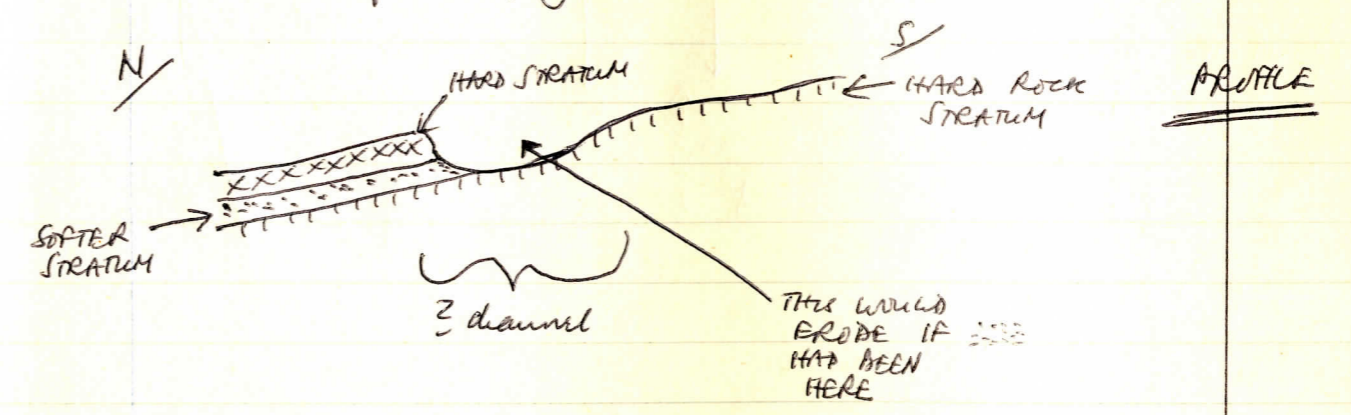 N/
S/
HARD STRATUM
HARD ROCK
STRATUM
PROFILE
XXXXXXXXX
SOFTER
STRATUM
? channel
THIS WOULD
ERODE IF
HAD BEEN
HERE